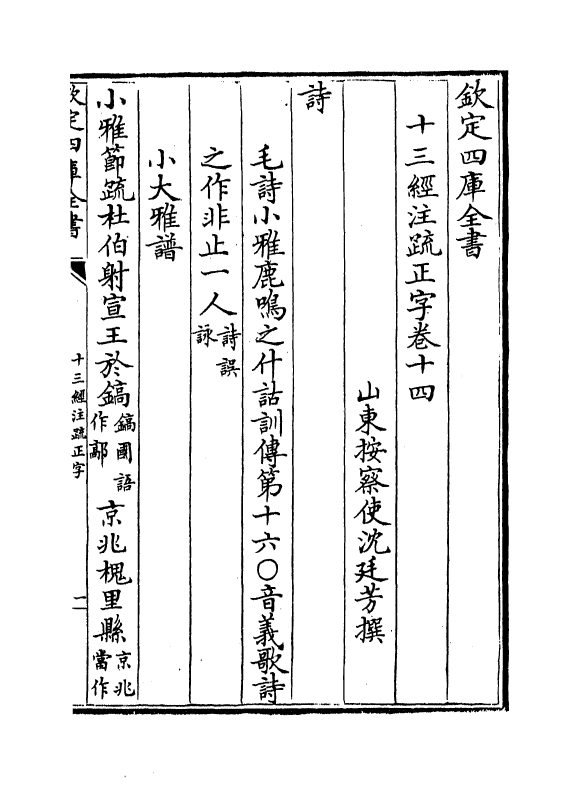 欽定四庫全書
十三經注疏正字卷十四
山東按察使沈廷芳撰
詩
毛詩小雅鹿鳴之什詁訓傳第十六○音義歌詩
之作非止一人詩誤詠
小大雅譜
小雅節疏杜伯射宣王於鎬鎬國語作鄗京兆槐里縣京兆當作
欽定四庫全書
十三經注疏正字